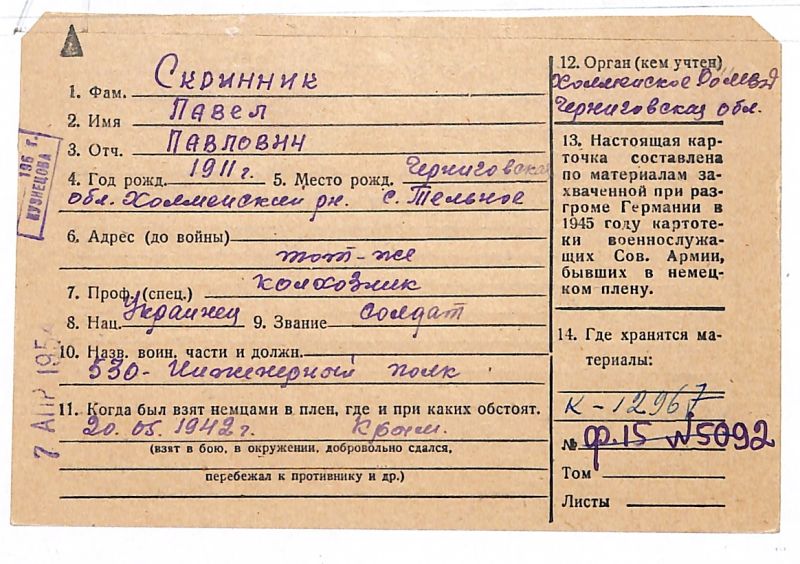 1. Фам. Скринник
2. Имя Павел
3. Отч. Павлович
4. Год рожд. 1911 г. 5. Место рожд. Черниговская
обл. Холменский рн. с. Тельное
6. Адрес (до войны)
тот-же
7. Проф. (спец.) колхозник
8. Нац. Украинец 9. Звание солдат
10. Назв. воин. части и должн.
530- Инженерный полк
11. Когда был взят немцами в плен, где и при каких обстоят.
20. 05. 1942 г. Крым.
(взят в бою, в окружении, добровольно сдался,
перебежал к противнику и др.)
12. Орган (кем учтен)
Холменское
Черниговская обл.
13. Настоящая кар-
точка составлена
по материалам за-
хваченной при раз-
громе Германии в
1945 году картоте-
ки военнослужа-
щих Сов. Армии,
бывших в немец-
ком плену.
14. Где хранятся ма-
териалы:
К-12967
№ ф.15 №5092
Том
Листы
196 г.
КУЗНЕЦОВА
7 АПР 195